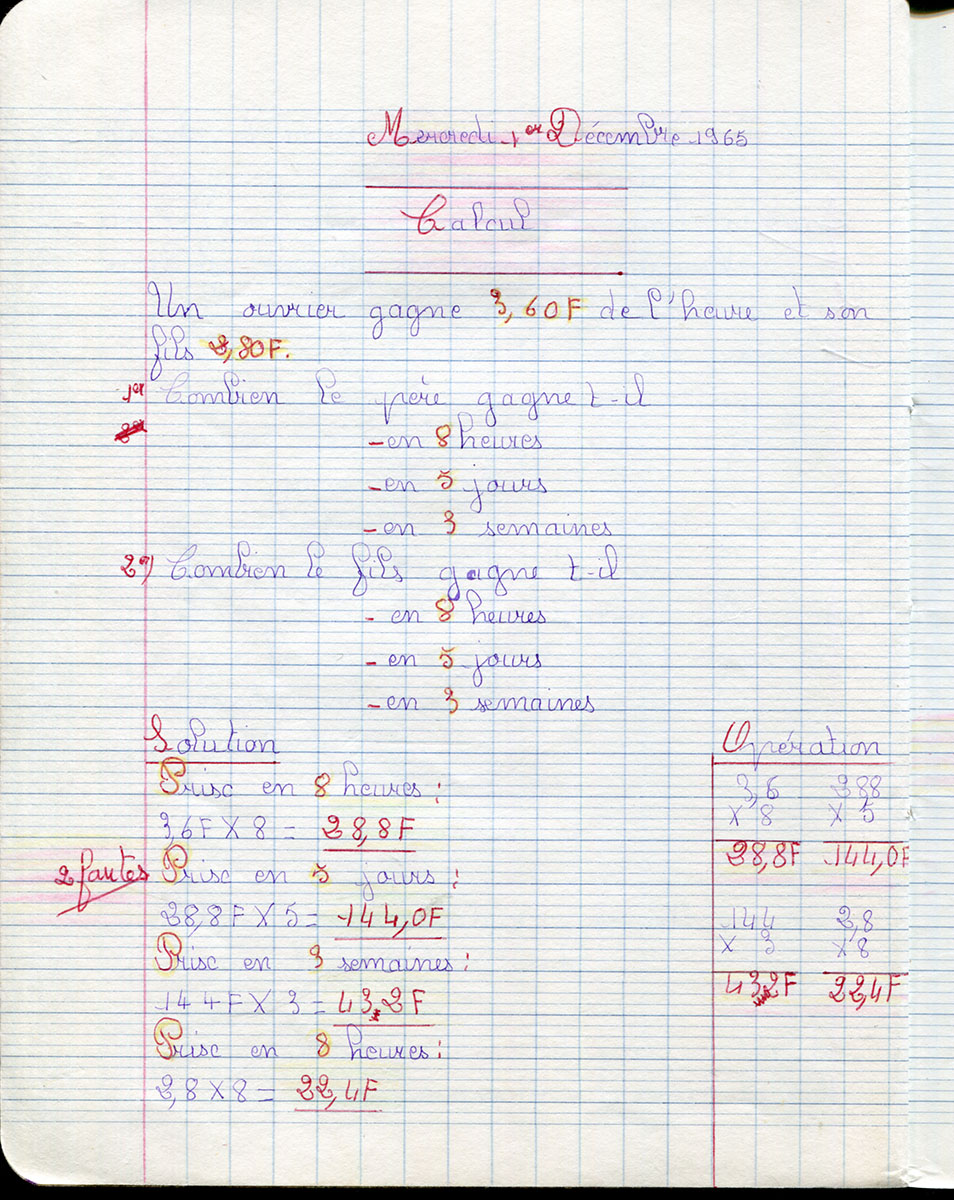 Mercredi 1er Décembre 1965
Calcul
Un ouvrier gagne 3,60F de l'heure et son
fils 2,80F.
1er Combien le père gagne t-il
- en 8 heures
- en 5 jours
- en 3 semaines
2e) Combien le fils gagne t-il
- en 8 heures
- en 5 jours
- en 3 semaines
Solution
Prisc en 8 heures :
3,6F X 8 = 28,8F
2 fautes
Prisc en 5 jours :
28,8F X 5 = 144,0F
Prisc en 3 semaines :
144F X 3 = 43.2F
Prisc en 8 heures :
2,8 X 8 = 22,4F
Opération
3,6 288
X 8 X 5
28,8F 144,0F
144 2,8
X 3 X 8
432F 22,4F